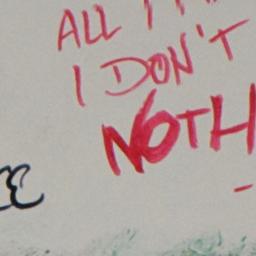 ALL
I DON'T
NOTH